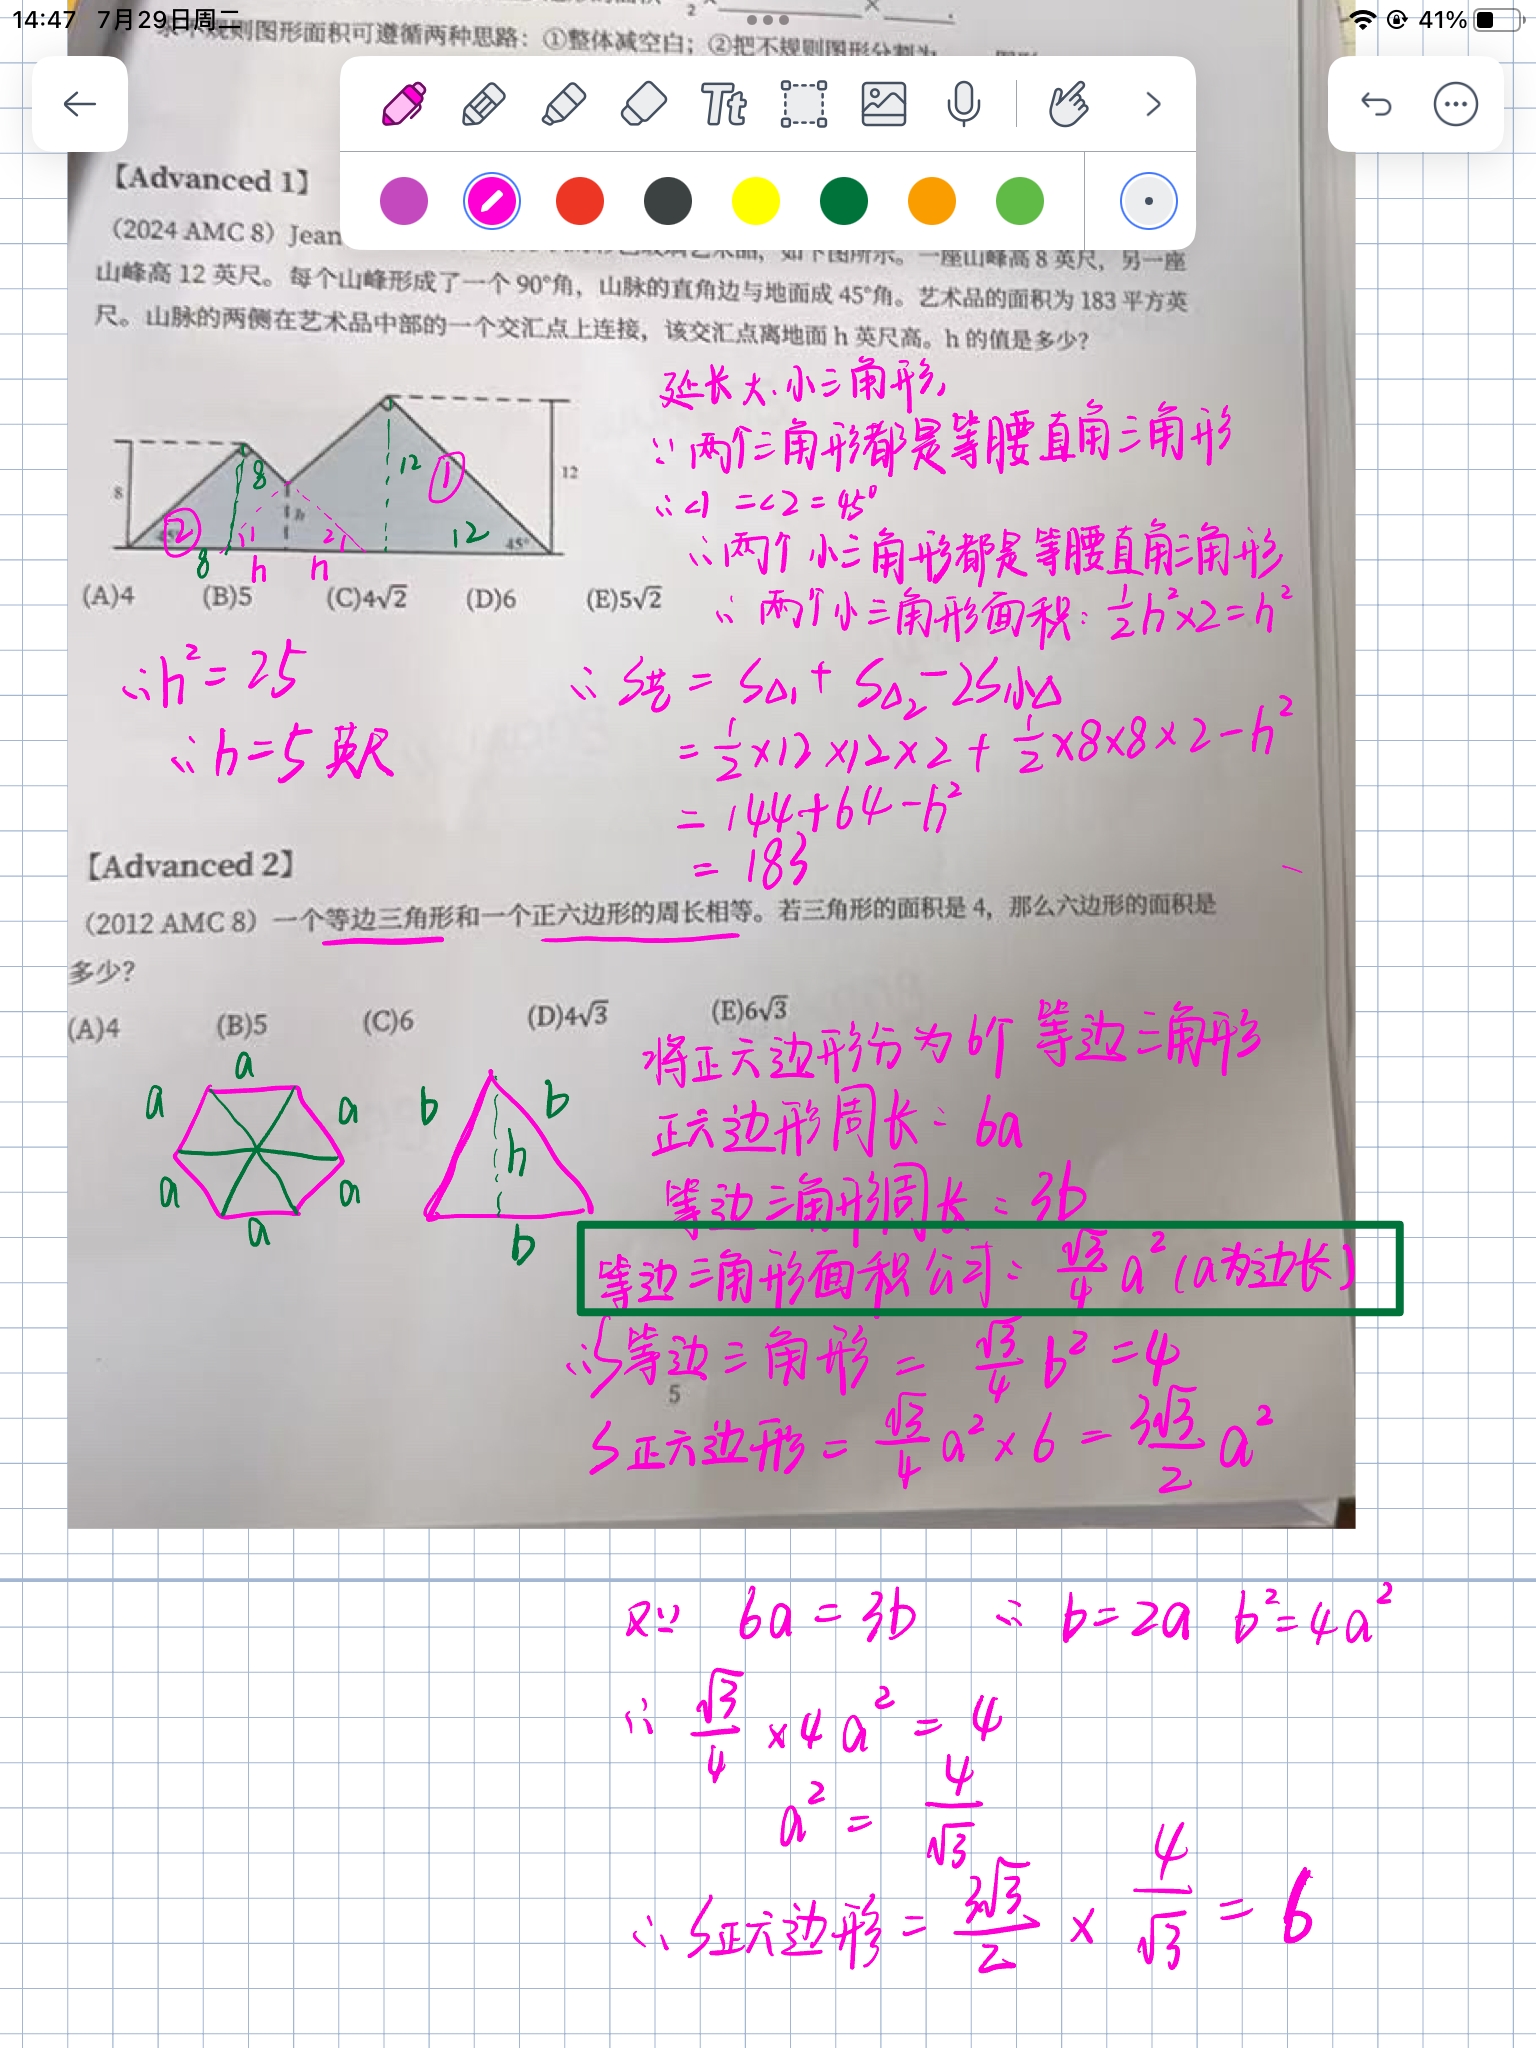 14:47 7月29日周二 41%
求不规则图形面积可遵循两种思路：①整体减空白；②把不规则图形分割为
Tt
【Advanced 1】
（2024 AMC 8）Jean
如下图所示。一座山峰高 8 英尺，另一座
山峰高 12 英尺。每个山峰形成了一个 90°角，山脉的直角边与地面成 45°角。艺术品的面积为 183 平方英
尺。山脉的两侧在艺术品中部的一个交汇点上连接，该交汇点离地面 h 英尺高。h 的值是多少？
延长大、小三角形，
∵两个三角形都是等腰直角三角形
∴∠1=∠2=45°
∴两个小三角形都是等腰直角三角形
∴两个小三角形面积：1/2h²×2=h²
8 8 12 ① 12
② 45° 1 h 2 12 45°
8 h h
(A)4 (B)5 (C)4√2 (D)6 (E)5√2
∴h²=25
∴h=5英尺
∴S艺=S△1+S△2-2S小△
=1/2×12×12×2+1/2×8×8×2-h²
=144+64-h²
=183
【Advanced 2】
（2012 AMC 8）一个等边三角形和一个正六边形的周长相等。若三角形的面积是 4，那么六边形的面积是
多少？
(A)4 (B)5 (C)6 (D)4√3 (E)6√3
a a a a a a
b b h b
将正六边形分为6个等边三角形
正六边形周长：6a
等边三角形周长：3b
等边三角形面积公式：√3/4 a²(a为边长)
∴S等边三角形=√3/4 b²=4
5
S正六边形=√3/4 a²×6=3√3/2 a²
又∵ 6a=3b ∴b=2a b²=4a²
∴√3/4×4a²=4
a²=4/√3
∴S正六边形=3√3/2×4/√3=6